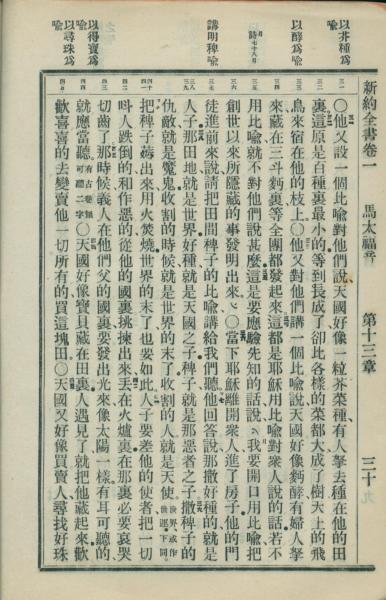 新約全書卷一　馬太福音　第十三章　三十
以芥種為喩
以酵為喩
詩七十八篇
講明稗喩
以得寶為喩
以尋珠為喩
〇他又設一個比喩對他們說天國好像一粒芥菜種有人拏去種在他的田
裏這原是百種裏最小的等到長成了卻比各樣的菜都大成了樹天上的飛
鳥來宿在他的枝上〇他又對他們講一個比喩說天國好像麪酵有婦人拏
來藏在三斗麪裏等全團都發起來這都是耶穌用比喩對衆人說的話若不
用比喩就不對他們說甚麼這是要應驗先知的話說我要開口用比喩把
創世以來所隱藏的事發明出來〇當下耶穌離開衆人進了房子他的門
徒進前來說請把田間稗子的比喩講給我們聽他回答說那撒好種的就是
人子那田地就是世界好種就是天國之子稗子就是那惡者之子撒稗子的
仇敵就是魔鬼收割的時候就是世界的末了收割的人就是天使
把稗子薅出來用火焚燒世界的末了也要如此人子要差他的使者把一切
呌人跌倒的和作惡的從他的國裏挑揀出來丟在火爐裏在那裏必要哀哭
切齒了那時候義人在他們父的國裏要發出光來像太陽一樣有耳可聽的
就應當聽有古卷無可聽二字〇天國好像寶貝藏在田裏人遇見了就把他藏起來歡
歡喜喜的去變賣他一切所有的買這塊田〇天國又好像買賣人尋找好珠